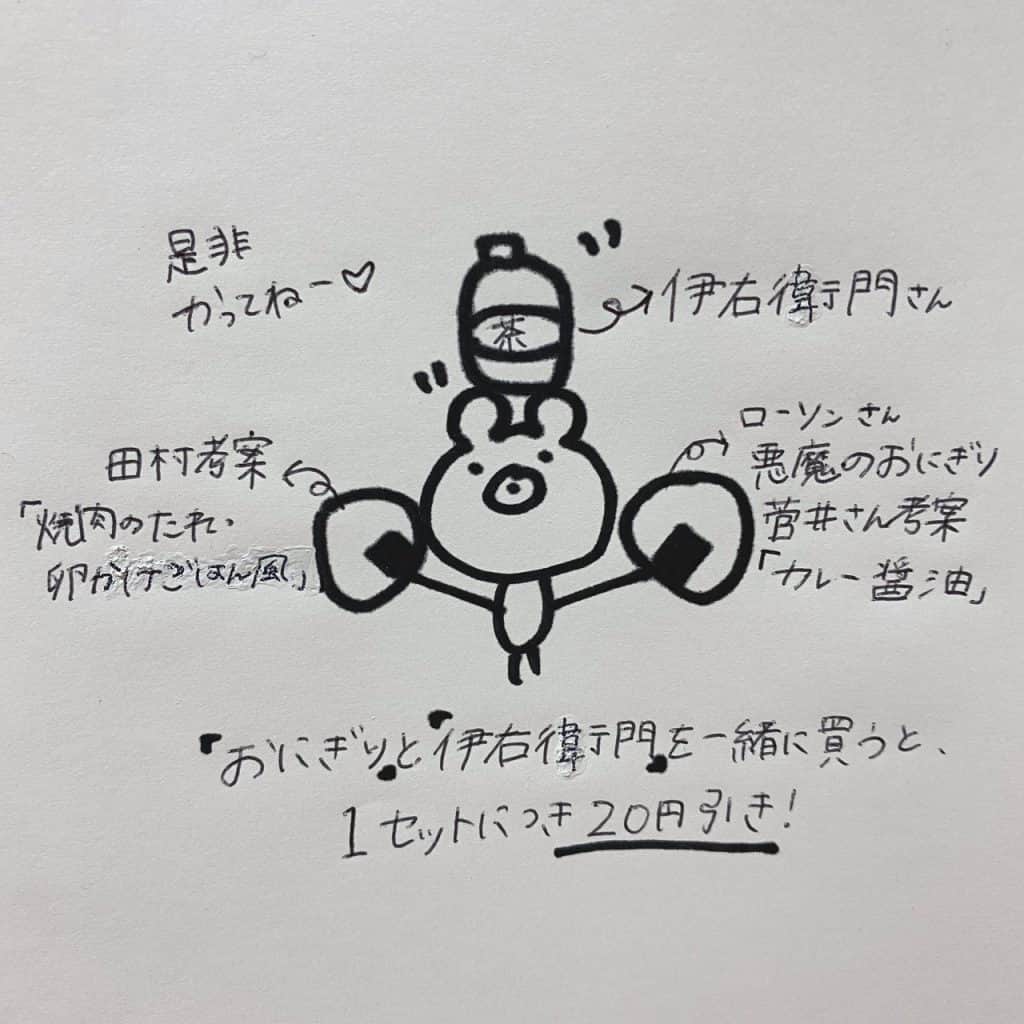 是非
かってねー♡
茶
伊右衛門さん
田村考案
「焼肉のたれ・
卵かけごはん風」
ローソンさん
悪魔のおにぎり
菅井さん考案
「カレー醤油」
「おにぎり」と「伊右衛門」を一緒に買うと、
1セットにつき20円引き!